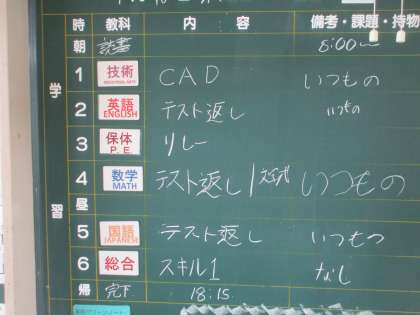 時 教科 内容 備考・課題・持物
朝 読書 8:00〜
学習
1 技術 INDUSTRIAL ARTS CAD いつもの
2 英語 ENGLISH テスト返し いつもの
3 保体 P.E. リレー
4 数学 MATH テスト返し いつもの
昼
5 国語 JAPANESE テスト返し いつもつ
6 総合 スキル1 なし
帰 完下 18:15